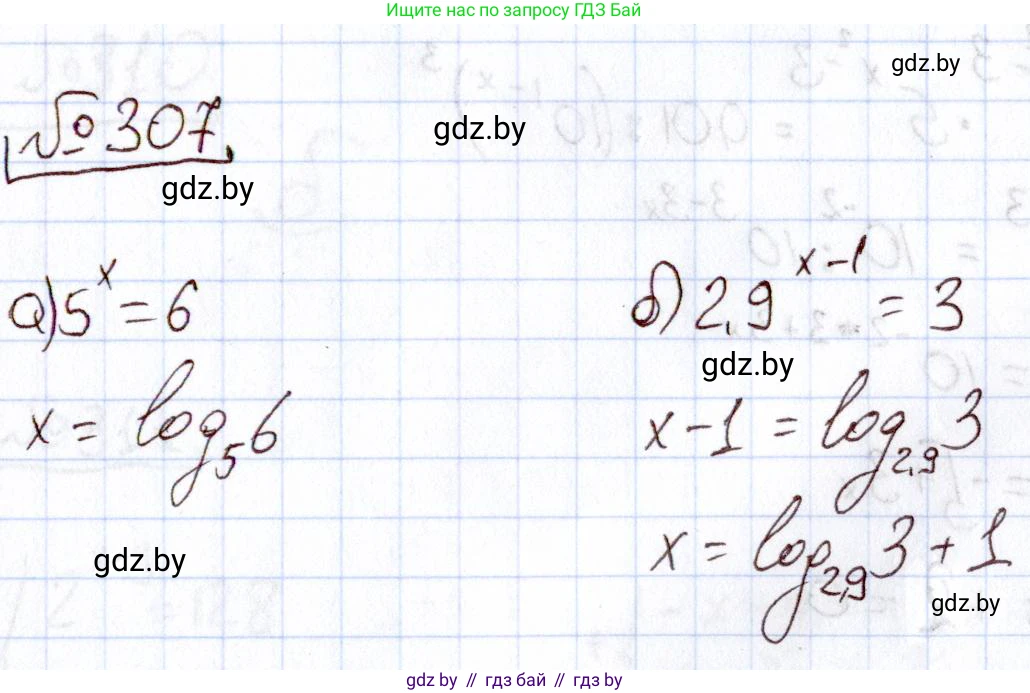 Ищите нас по запросу ГДЗ Бай
gdz.by
№ 307.
gdz.by
gdz.by
а) 5^x = 6
x = log_5 6
gdz.by
б) 2,9^{x-1} = 3
gdz.by
x - 1 = log_{2,9} 3
x = log_{2,9} 3 + 1
gdz.by
gdz.by // гдз бай // гдз by